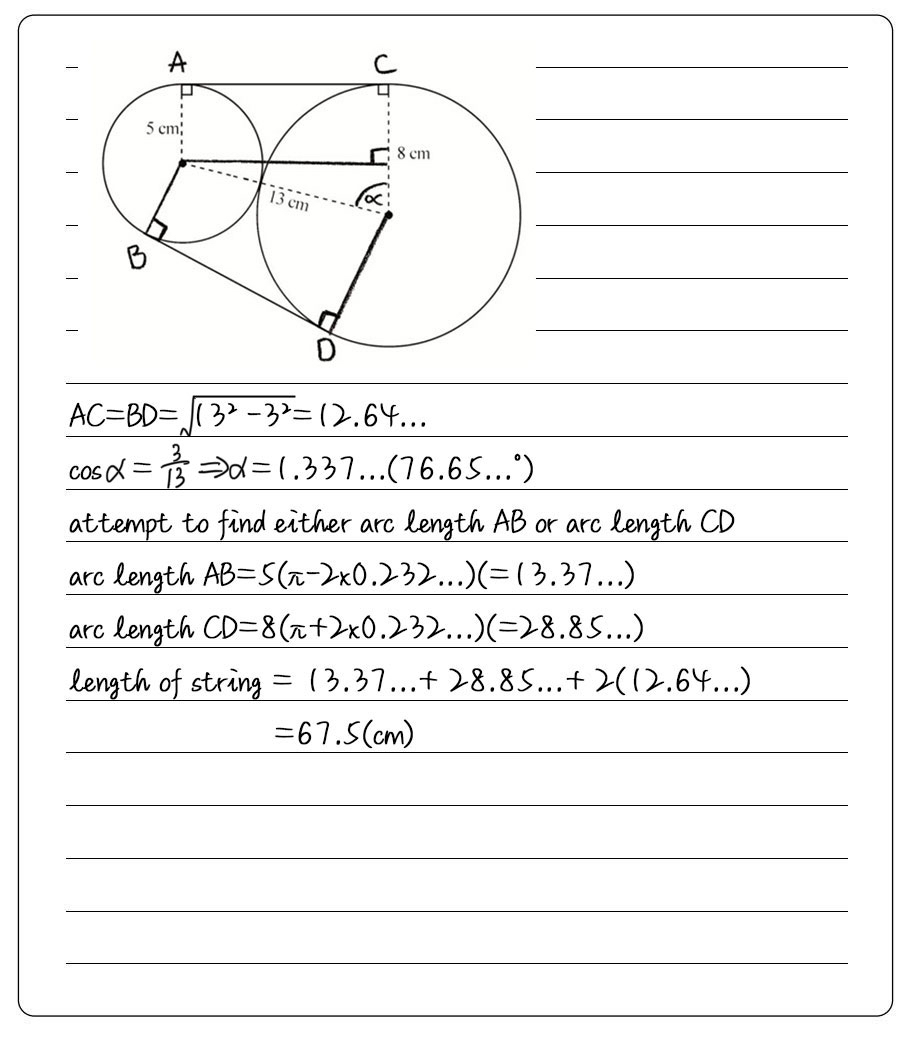 A C
5 cm
8 cm
13 cm
α
B
D
AC=BD=√(13² -3²)=12.64...
cosα = 3/13 ⇒α=1.337...(76.65...°)
attempt to find either arc length AB or arc length CD
arc length AB=5(π-2x0.232...)(=13.37...)
arc length CD=8(π+2x0.232...)(=28.85...)
length of string = 13.37...+ 28.85...+ 2(12.64...)
=67.5(cm)